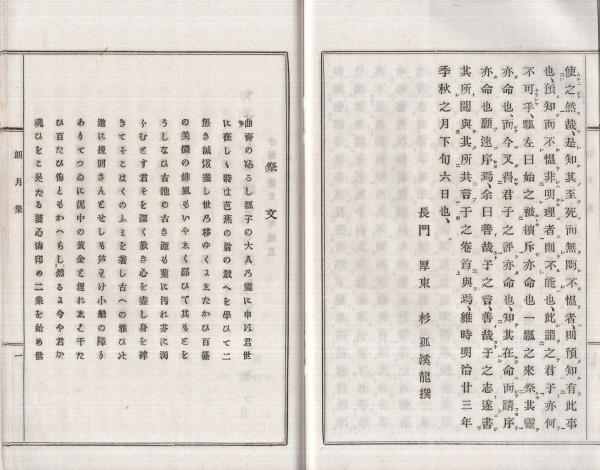 使之然哉、是知其至死而無悶不慍者、則預知有此事
也、預知而不慍非明理者則不能也、此謂之君子亦何
不可乎、瓢左曰始之被擯斥亦命也一瓢之來祭其靈
亦命也、而今又得君子之評亦命也、知其在命而請序
亦命也願速序焉、余曰善哉子之言、善哉子之志遂書
其所聞與其所共言于之卷首與焉、維時明治廿三年
季秋之月下旬六日也、
長門 厚東 杉孤溪龍撰
祭文
曲齋のぬるし瓢子の大人乃靈に申須君世
に在しゝ時は芭蕉の翁の敎へを學ひて二
無き誠を盡し世乃移ゆくまたかひ百
の美濃の俳風もいやまく鄙ひて其もとを
うしなひ古池の古き源も遂に汚れ芥に濁
むとす君そを深く歎き心を盡し身を碎
きてそこはくのふミを著し古への雅ひ
道に挽回さんとせしも芦わけ小船の障り
ありてつゐに泥中の黃金と埋れ
ひ百たひ悔ともかへらし然るに今や君か
魂ひをこめたる 海印の二集を始め世
朗月集
一